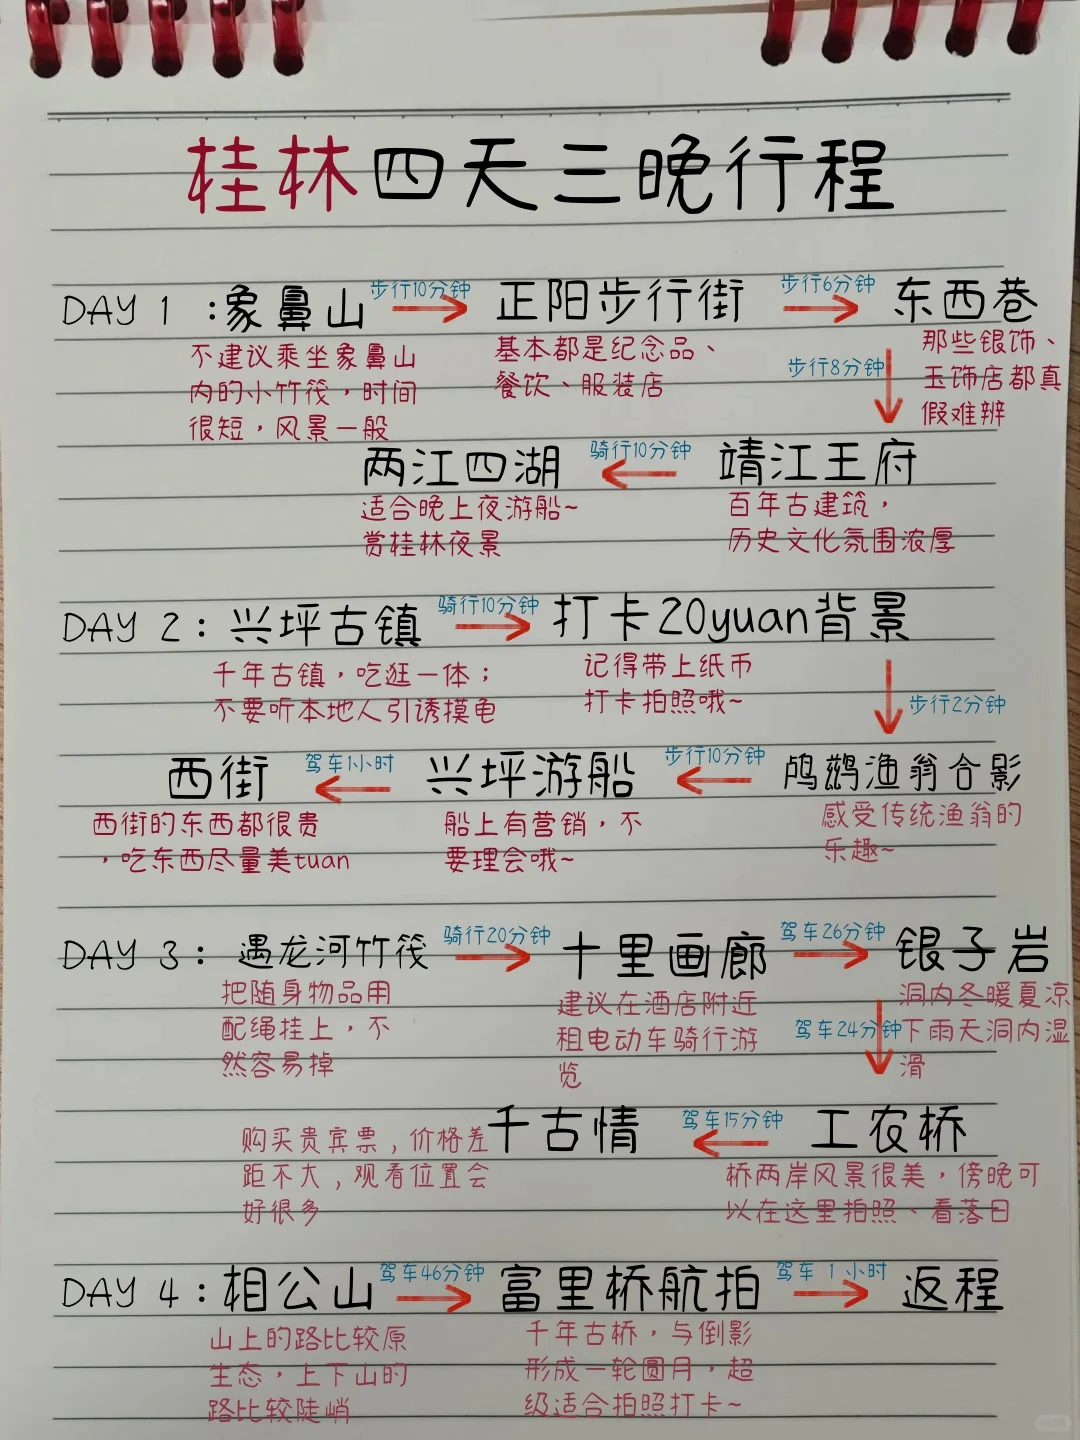 桂林四天三晚行程
DAY 1 :象鼻山 步行10分钟 正阳步行街 步行6分钟 东西巷
不建议乘坐象鼻山
内的小竹筏，时间
很短，风景一般
基本都是纪念品、
餐饮、服装店
那些银饰、
玉饰店都真
假难辨
步行8分钟
两江四湖 骑行10分钟 靖江王府
适合晚上夜游船~
赏桂林夜景
百年古建筑，
历史文化氛围浓厚
DAY 2：兴坪古镇 骑行10分钟 打卡20yuan背景
千年古镇，吃逛一体；
不要听本地人引诱摸龟
记得带上纸币
打卡拍照哦~
步行2分钟
西街 驾车1小时 兴坪游船 步行10分钟 鸬鹚渔翁合影
西街的东西都很贵
，吃东西尽量美tuan
船上有营销，不
要理会哦~
感受传统渔翁的
乐趣~
DAY 3：遇龙河竹筏 骑行20分钟 十里画廊 驾车26分钟 银子岩
把随身物品用
配绳挂上，不
然容易掉
建议在酒店附近
租电动车骑行游
览
洞内冬暖夏凉
下雨天洞内湿
滑
驾车24分钟
千古情 驾车15分钟 工农桥
购买贵宾票，价格差
距不大，观看位置会
好很多
桥两岸风景很美，傍晚可
以在这里拍照、看落日
DAY 4：相公山 驾车46分钟 富里桥航拍 驾车 1 小时 返程
山上的路比较原
生态，上下山的
路比较陡峭
千年古桥，与倒影
形成一轮圆月，超
级适合拍照打卡~